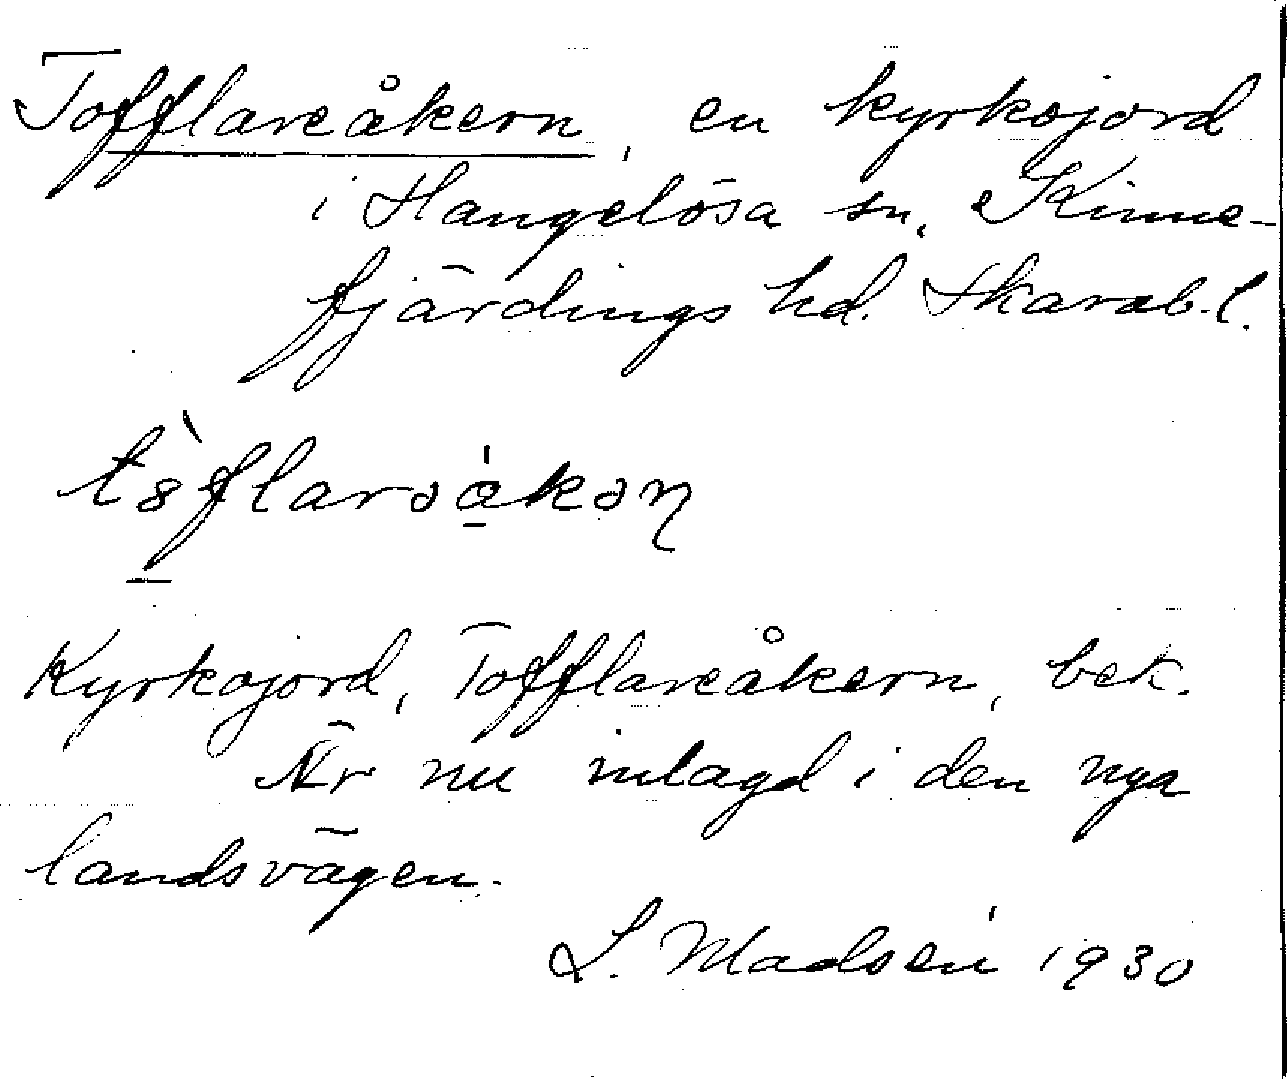 Tofflareåkern, en kyrkojord
i Hangelösa sn, Kinne-
fjärdings hd. Skarab.l.
Kyrkojord, Tofflareåkern, bek.
Är nu inlagd i den nya
landsvägen.
L. Madsén 1930